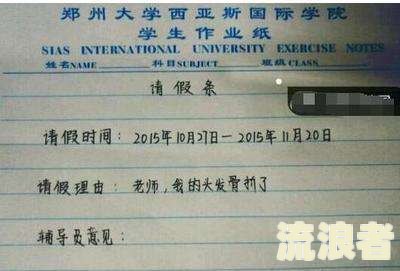 郑州大学西亚斯国际学院
学生作业纸
SIAS INTERNATIONAL UNIVERSITY EXERCISE NOTES
姓名NAME 科目SUBJECT 班级CLASS
请假条
请假时间：2015年10月27日—2015年11月20日
请假理由：老师，我的头发骨折了
辅导员意见：
流浪者